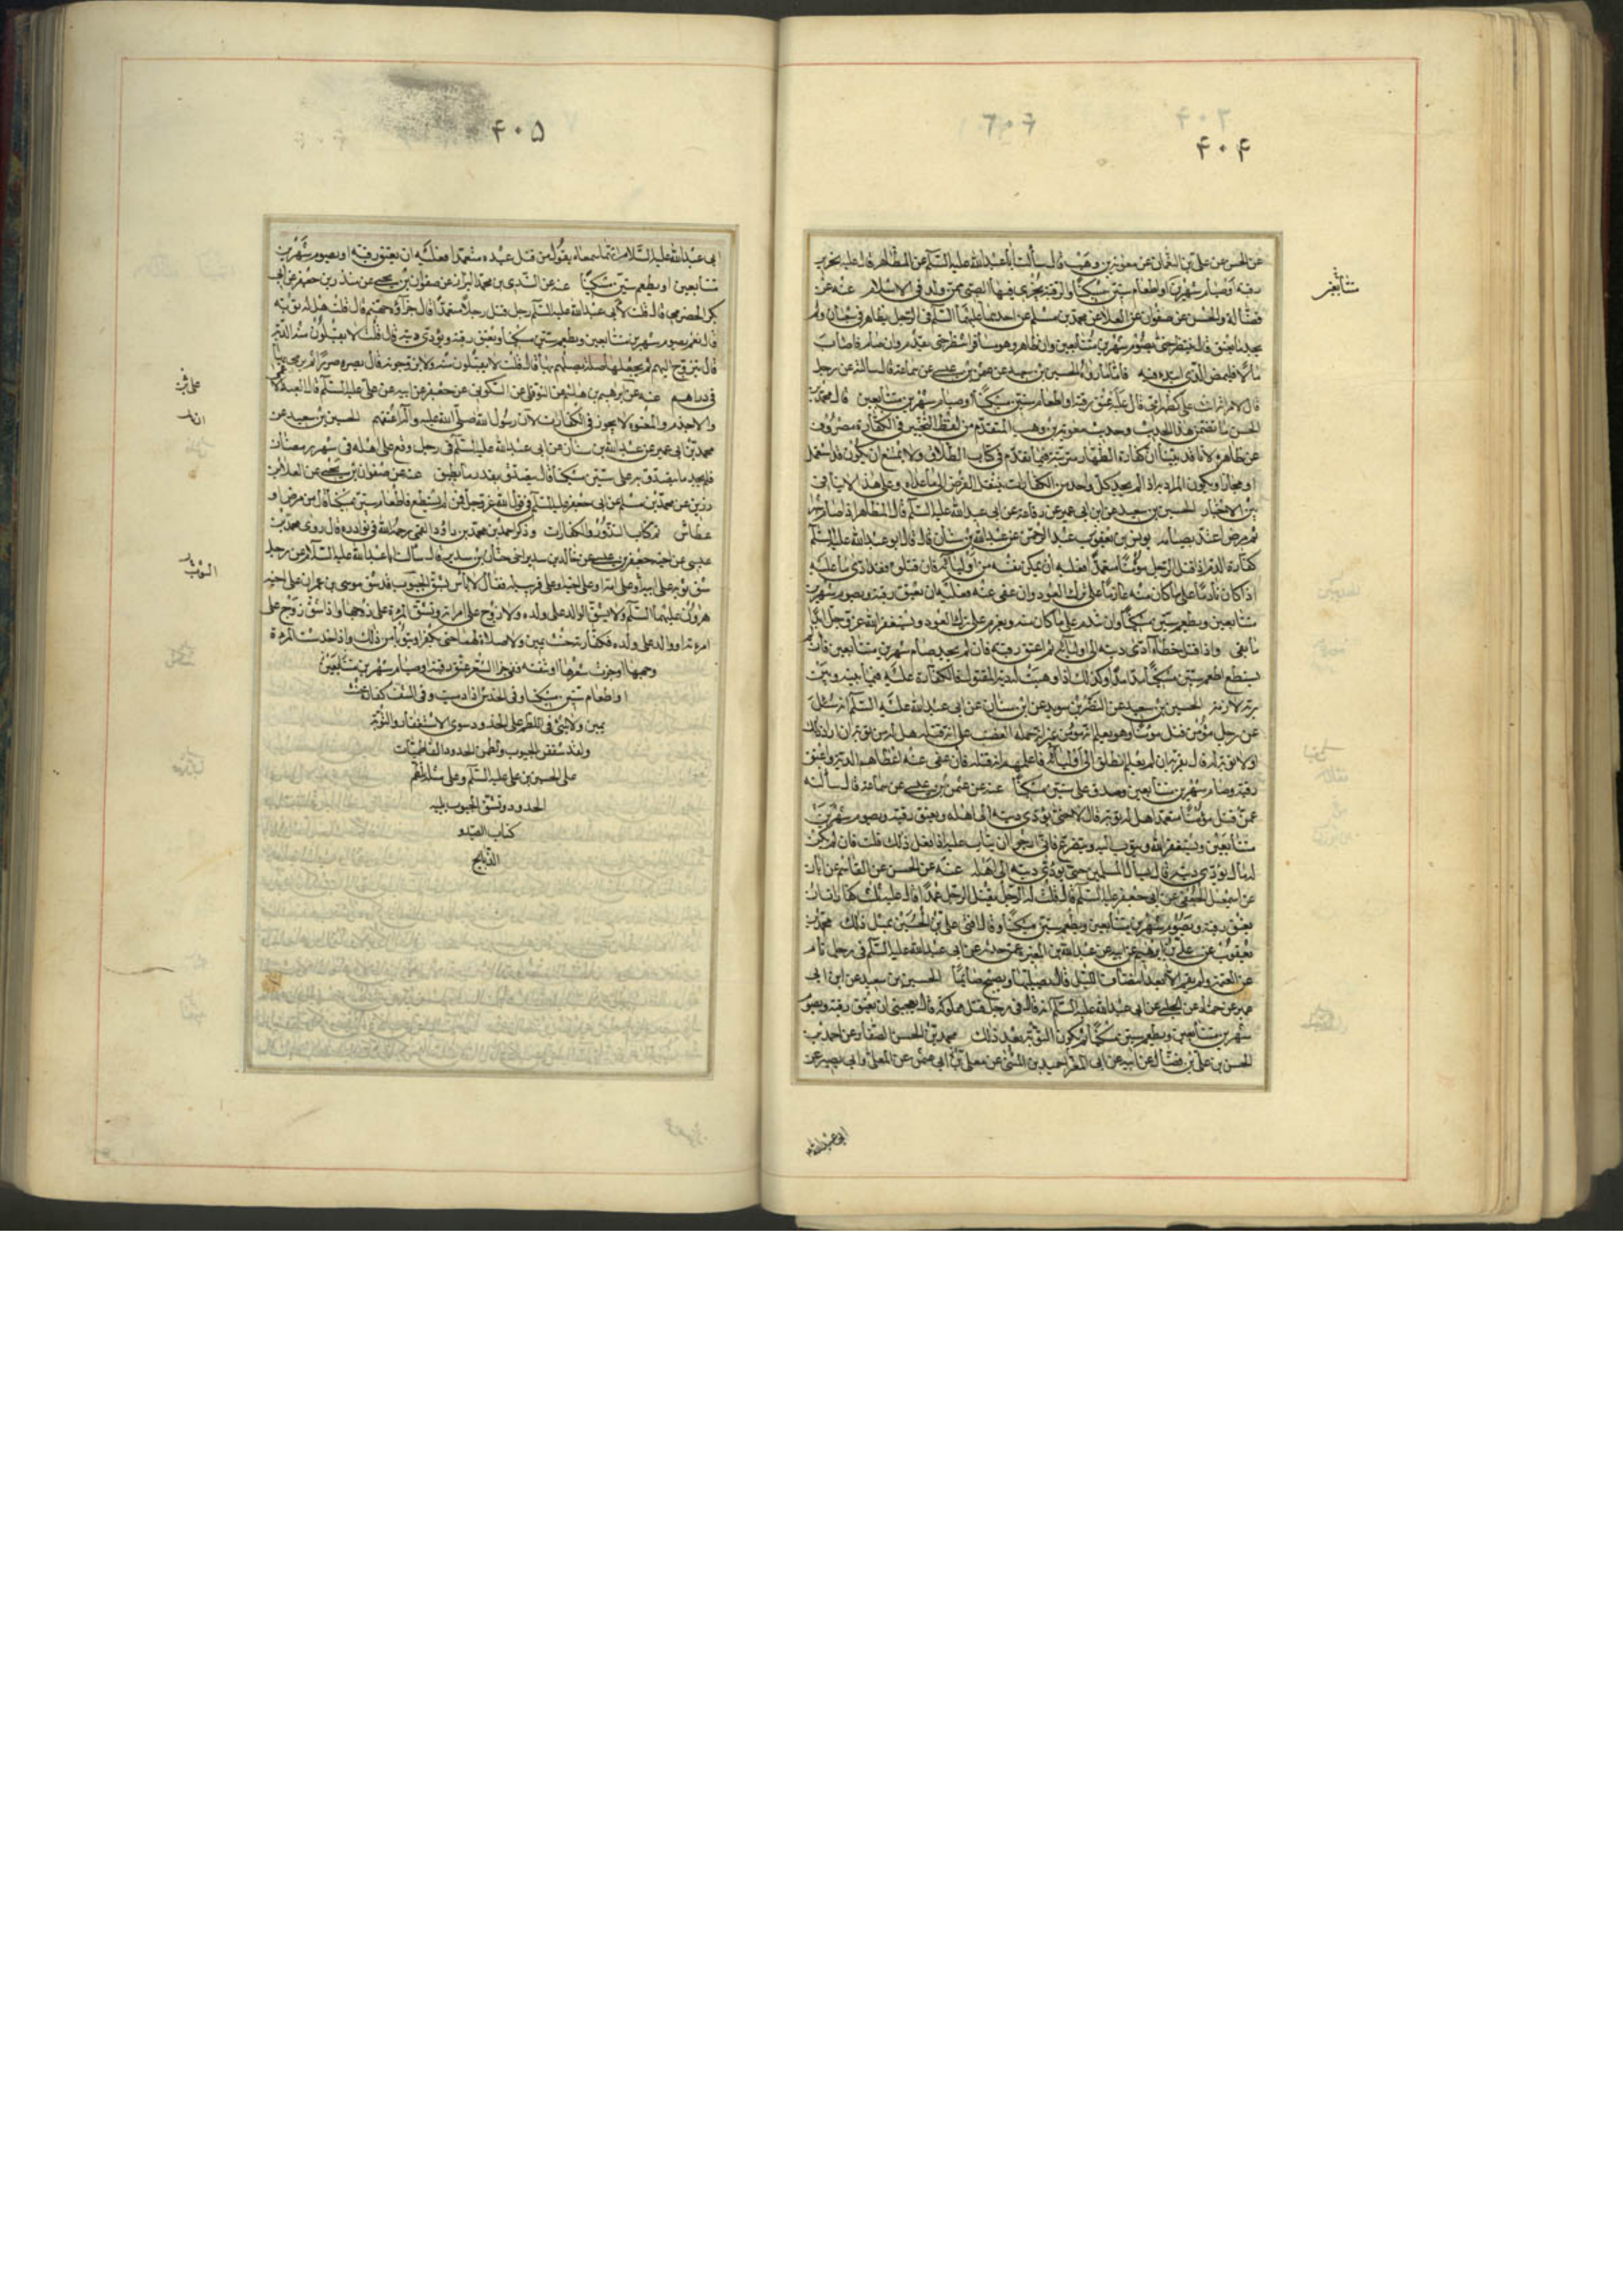 ۴۰۴
عن الحسن عن علي بن النعمان عن معوية بن وهب قال سألت أبا عبد الله عليه السلام عن المظاهر قال عليه تحرير
رقبة او صيام شهرين او اطعام ستين مسكينا والرقبة يجزي فيها الصبي ممن ولد في الاسلام عنه عن
فضالة والحسن عن صفوان عن العلا عن محمد بن مسلم عن احدهما عليهما السلم في الرجل يظاهر في شعبان ولم
يجد ما يعتق قال ينتظر حتى يصوم شهرين متتابعين وان ظاهر وهو مسافر انتظر حتى يقدم وان صام فاصاب
مالا فليمض الذي ابتدء فيه فاما ما رواه الحسين بن سعيد عن عثمن بن عيسى عن سماعة قال سألته عن رجل
قال لامراته انت علي كظهر امي قال عليه عتق رقبة او اطعام ستين مسكينا او صيام شهرين متتابعين قال محمد بن
الحسن ما تضمن هذا الحديث وحديث معوية بن وهب المتقدم من لفظ التخيير في الكفارة مصروف
عن ظاهره لانا قد بينا ان كفارة الظهار مرتبة فيما تقدم في كتاب الطلاق ولا يمتنع ان يكون قد استعمل
او مجازا ويكون المراد به اذا لم يجد كل واحد من الكفارات ينتقل الفرض الى ما عداه وعلى هذا لا ينافي
بين الاخبار الحسين بن سعيد عن ابن ابي عمير عن رفاعة عن ابي عبد الله عليه السلم قال المظاهر اذا صام شهرا
ثم مرض اعتد بصيامه يونس بن عبد الرحمن عن عبد الله بن سنان قال قال ابو عبد الله عليه السلم
كفارة الدم اذا قتل الرجل مؤمنا متعمدا فعليه ان يمكن نفسه من اوليائه فان قتلوه فقد ادى ما عليه
اذا كان نادما على ما كان منه عازما على ترك العود وان عفى عنه فعليه ان يعتق رقبة ويصوم شهرين
متتابعين ويطعم ستين مسكينا وان يندم على ما كان منه ويعزم على ترك العود ويستغفر الله عز وجل ابدا
ما بقي واذا قتل خطأ ادى ديته الى اوليائه ثم اعتق رقبة فان لم يجد صام شهرين متتابعين فان لم
يستطع اطعم ستين مسكينا مدا مدا وكذلك اذا وهبت له دية المقتول فالكفارة عليه فيما بينه وبين
ربه لازمة الحسين بن سعيد عن النضر بن سويد عن ابن سنان عن ابي عبد الله عليه السلم انه سئل
عن رجل مؤمن قتل مؤمنا وهو يعلم انه مؤمن غير انه حمله الغضب على انه قتله هل له من توبة ان اراد ذلك
او لا توبة له قال يقر به ان لم يعلم انطلق الى اوليائه فاعلمهم انه قتله فان عفى عنه اعطاهم الدية واعتق
رقبة وصام شهرين متتابعين وتصدق على ستين مسكينا عنه عن عثمن بن عيسى عن سماعة قال سألته
عمن قتل مؤمنا متعمدا هل له توبة قال لا حتى يؤدي ديته الى اهله ويعتق رقبة ويصوم شهرين
متتابعين ويستغفر الله ويتوب اليه ويتضرع فاني ارجو ان يتاب عليه اذا فعل ذلك قلت فان لم يكن
له مال يؤدي ديته قال يسأل المسلمين حتى يؤدي ديته الى اهله عنه عن الحسن عن القاسم عن ابان
عن اسمعيل الجعفي عن ابي جعفر عليه السلم قال قلت له الرجل يقتل الرجل عمدا قال عليه ثلث كفارات
يعتق رقبة ويصوم شهرين متتابعين ويطعم ستين مسكينا وقال افتى علي بن الحسين بمثل ذلك محمد بن
يعقوب عن علي بن ابراهيم عن ابيه عن عبد الله بن المغيرة عمن حدثه عن ابي عبد الله عليه السلم في رجل نام
عن العتمة ولم يقم الا بعد انتصاف الليل قال يصليها ويصبح صائما الحسين بن سعيد عن ابن ابي
عمير عن حماد عن الحلبي عن ابي عبد الله عليه السلم انه قال في رجل قتل مملوكه قال يعجبني ان يعتق رقبة ويصوم
شهرين متتابعين ويطعم ستين مسكينا ثم يكون التوبة بعد ذلك محمد بن الحسن الصفار عن احمد بن
الحسن بن علي بن فضال عن ابيه عن ابي المغرا حميد بن المثنى عن معلى ابي عثمن عن المعلى وابي بصير عن
ابي عبد الله
۴۰۵
ابي عبد الله عليه السلام انهما سمعاه يقول من قتل عبده متعمدا فعليه ان يعتق رقبة او يصوم شهرين
متتابعين او يطعم ستين مسكينا عنه عن السندي بن محمد البزاز عن صفوان بن يحيى عن منذر بن جعفر عن ابي
بكر الحضرمي قال قلت لابي عبد الله عليه السلم رجل قتل رجلا متعمدا قال جزاؤه جهنم قال قلت هل له توبة
قال نعم يصوم شهرين متتابعين ويطعم ستين مسكينا ويعتق رقبة ويؤدي ديته قال قلت لا يقبلون منه الدية
قال يتزوج اليهم ثم يجعلها صلة يصلهم بها قال قلت لا يقبلون منه ولا يزوجونه قال يصره صررا ثم يرمي بها
في دارهم عنه عن ابراهيم بن هاشم عن النوفلي عن السكوني عن جعفر عن ابيه عن علي عليه السلم قال العبد الاعمى
والاجذم والمعتوه لا يجوز في الكفارات لان رسول الله صلى الله عليه وآله اعتقهم الحسين بن سعيد عن
محمد بن ابي عمير عن عبد الله بن سنان عن ابي عبد الله عليه السلم في رجل وقع على اهله في شهر رمضان
فلم يجد ما يتصدق به على ستين مسكينا قال يتصدق بقدر ما يطيق عنه عن صفوان بن يحيى عن العلا بن
رزين عن محمد بن مسلم عن ابي جعفر عليه السلم في قول الله عز وجل فمن لم يستطع فاطعام ستين مسكينا قال من مرض او
عطاش ثم كتاب النذور والكفارات وذكر احمد بن محمد بن داود القمي رحمه الله في نوادره قال روى محمد بن
عيسى عن اخيه جعفر بن عيسى عن خالد بن سدير اخي حنان بن سدير قال سألت ابا عبد الله عليه السلام عن رجل
شق ثوبه على ابيه او على امه او على اخيه او على قريب له فقال لا بأس بشق الجيوب قد شق موسى بن عمران على اخيه
هرون عليهما السلم ولا يشق الوالد على ولده ولا زوج على امراته وتشق المرءة على زوجها واذا شق زوج على
امراته او والد على ولده فكفارته حنث يمين ولا صلاة لهما حتى يكفرا ويتوبا من ذلك واذا خدشت المرءة
وجهها او جزت شعرها او نتفته ففي جز الشعر عتق رقبة او صيام شهرين متتابعين
او اطعام ستين مسكينا وفي الخدش اذا دميت وفي النتف كفارة حنث
يمين ولا شئ في اللطم على الخدود سوى الاستغفار والتوبة
ولقد شققن الجيوب ولطمن الخدود الفاطميات
على الحسين بن علي عليه السلم وعلى مثله تلطم
الخدود وتشق الجيوب يليه
كتاب الصيد و
الذبائح